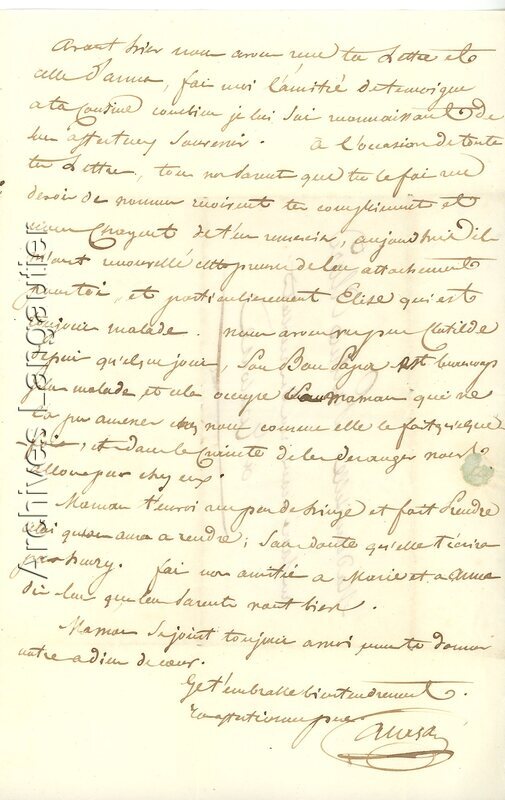 avant hier nous avons reçu ta Lettre et
celle d'anna, fai moi l'amitié de temoigné
a ta Cousine combien je lui sui reconnaissant de
son affectueux Souvenir. à l'occasion de toute
ta Lettre, tous nos parent que tu te fai un
devoir de nommer reçoivent tes compliment et
nous chargent de t'en remercier, aujourdhui il
m'ont renouvellé cette preuve de leur attachement
pour toi, et particulierement Elise qui est
toujour malade. nous avons vu peu Clotilde
depui quelque jour, Son Bon Papa est beaucoup
plus malade et cela occupe Sa maman qui ne
la pas amener chez nous comme elle le fait quelque
foi, et dans la Crainte de les deranger nous
allons peu chez eux.
Maman t'envoi un peu de linge et fait prendre
celui que tu aura a rendre; San doute qu'elle t'écrira
par henry. fai nos amitié a Marie et a Anna
di leur que leur parent vont bien.
Maman Se joint toujour a moi pour te donner
notre adieu de cœur.
Je t'embrasse bien tendrement.
Ton affectionné pere
Archives Langautier